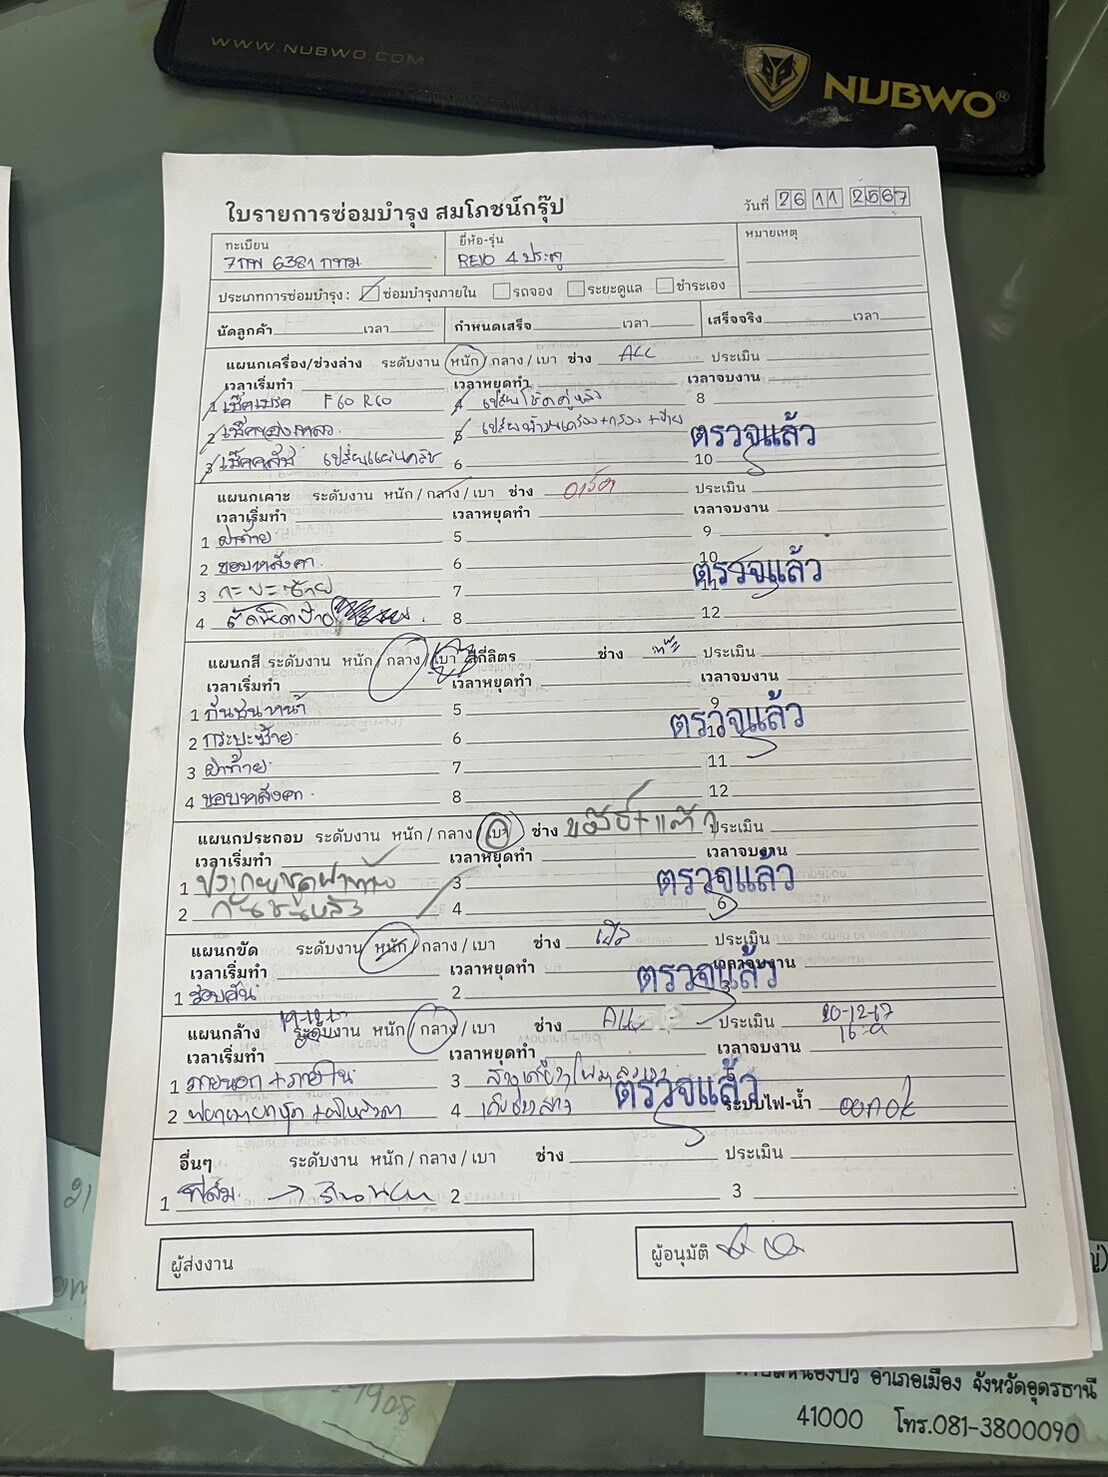 WWW.NUBWO.COM
NUBWO®
ใบรายการซ่อมบำรุง สมโภชน์กรุ๊ป
วันที่ 26 11 2567
ทะเบียน
6381 กทม
ยี่ห้อ-รุ่น
REVO 4 ประตู
หมายเหตุ
ประเภทการซ่อมบำรุง : ซ่อมบำรุงภายใน รถจอง ระยะดูแล ชำระเอง
นัดลูกค้า เวลา กำหนดเสร็จ เวลา เสร็จจริง เวลา
แผนกเครื่อง/ช่วงล่าง ระดับงาน หนัก / กลาง / เบา ช่าง ALL ประเมิน
เวลาเริ่มทำ เวลาหยุดทำ เวลาจบงาน
1 เช็คเบรค F60 R60 4 เปลี่ยนโช๊คคู่หลัง 8
2 5 ตรวจแล้ว
3 เช็คคลัช เปลี่ยนแผ่นคลัช 6 10
แผนกเคาะ ระดับงาน หนัก / กลาง / เบา ช่าง ประเมิน
เวลาเริ่มทำ เวลาหยุดทำ เวลาจบงาน
1 ฝาท้าย 5 9
2 ขอบหลังคา 6 10
ตรวจแล้ว
3 กะบะซ้าย 7 11
4 8 12
แผนกสี ระดับงาน หนัก / กลาง / เบา สีกี่ลิตร ช่าง ประเมิน
เวลาเริ่มทำ เวลาหยุดทำ เวลาจบงาน
1 กันชนหน้า 5 9
ตรวจแล้ว
2 กระบะซ้าย 6 10
3 ฝาท้าย 7 11
4 ขอบหลังคา 8 12
แผนกประกอบ ระดับงาน หนัก / กลาง / เบา ช่าง ประเมิน
เวลาเริ่มทำ เวลาหยุดทำ เวลาจบงาน
1 ประกอบชุดฝาท้าย 3 5
ตรวจแล้ว
2 กันชนหลัง 4 6
แผนกขัด ระดับงาน หนัก / กลาง / เบา ช่าง ประเมิน
เวลาเริ่มทำ เวลาหยุดทำ เวลาจบงาน
ตรวจแล้ว
1 รอบคัน 2 3
แผนกล้าง ระดับงาน หนัก / กลาง / เบา ช่าง ALL ประเมิน 20-12-67
เวลาเริ่มทำ เวลาหยุดทำ เวลาจบงาน
1 ภายนอก + ภายใน 3
ตรวจแล้ว
2 4 ระบบไฟ-น้ำ
อื่นๆ ระดับงาน หนัก / กลาง / เบา ช่าง ประเมิน
1 ฟิล์ม 2 3
ผู้ส่งงาน
ผู้อนุมัติ
อำเภอเมือง จังหวัดอุดรธานี
41000 โทร.081-3800090